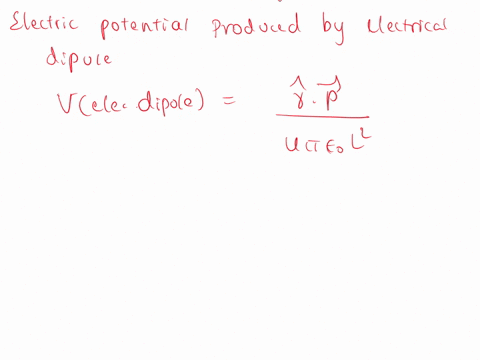 Electric potential produced by Electrical
dipole
V(elec. dipole) = r̂ . p⃗ / 4π ε₀ r²